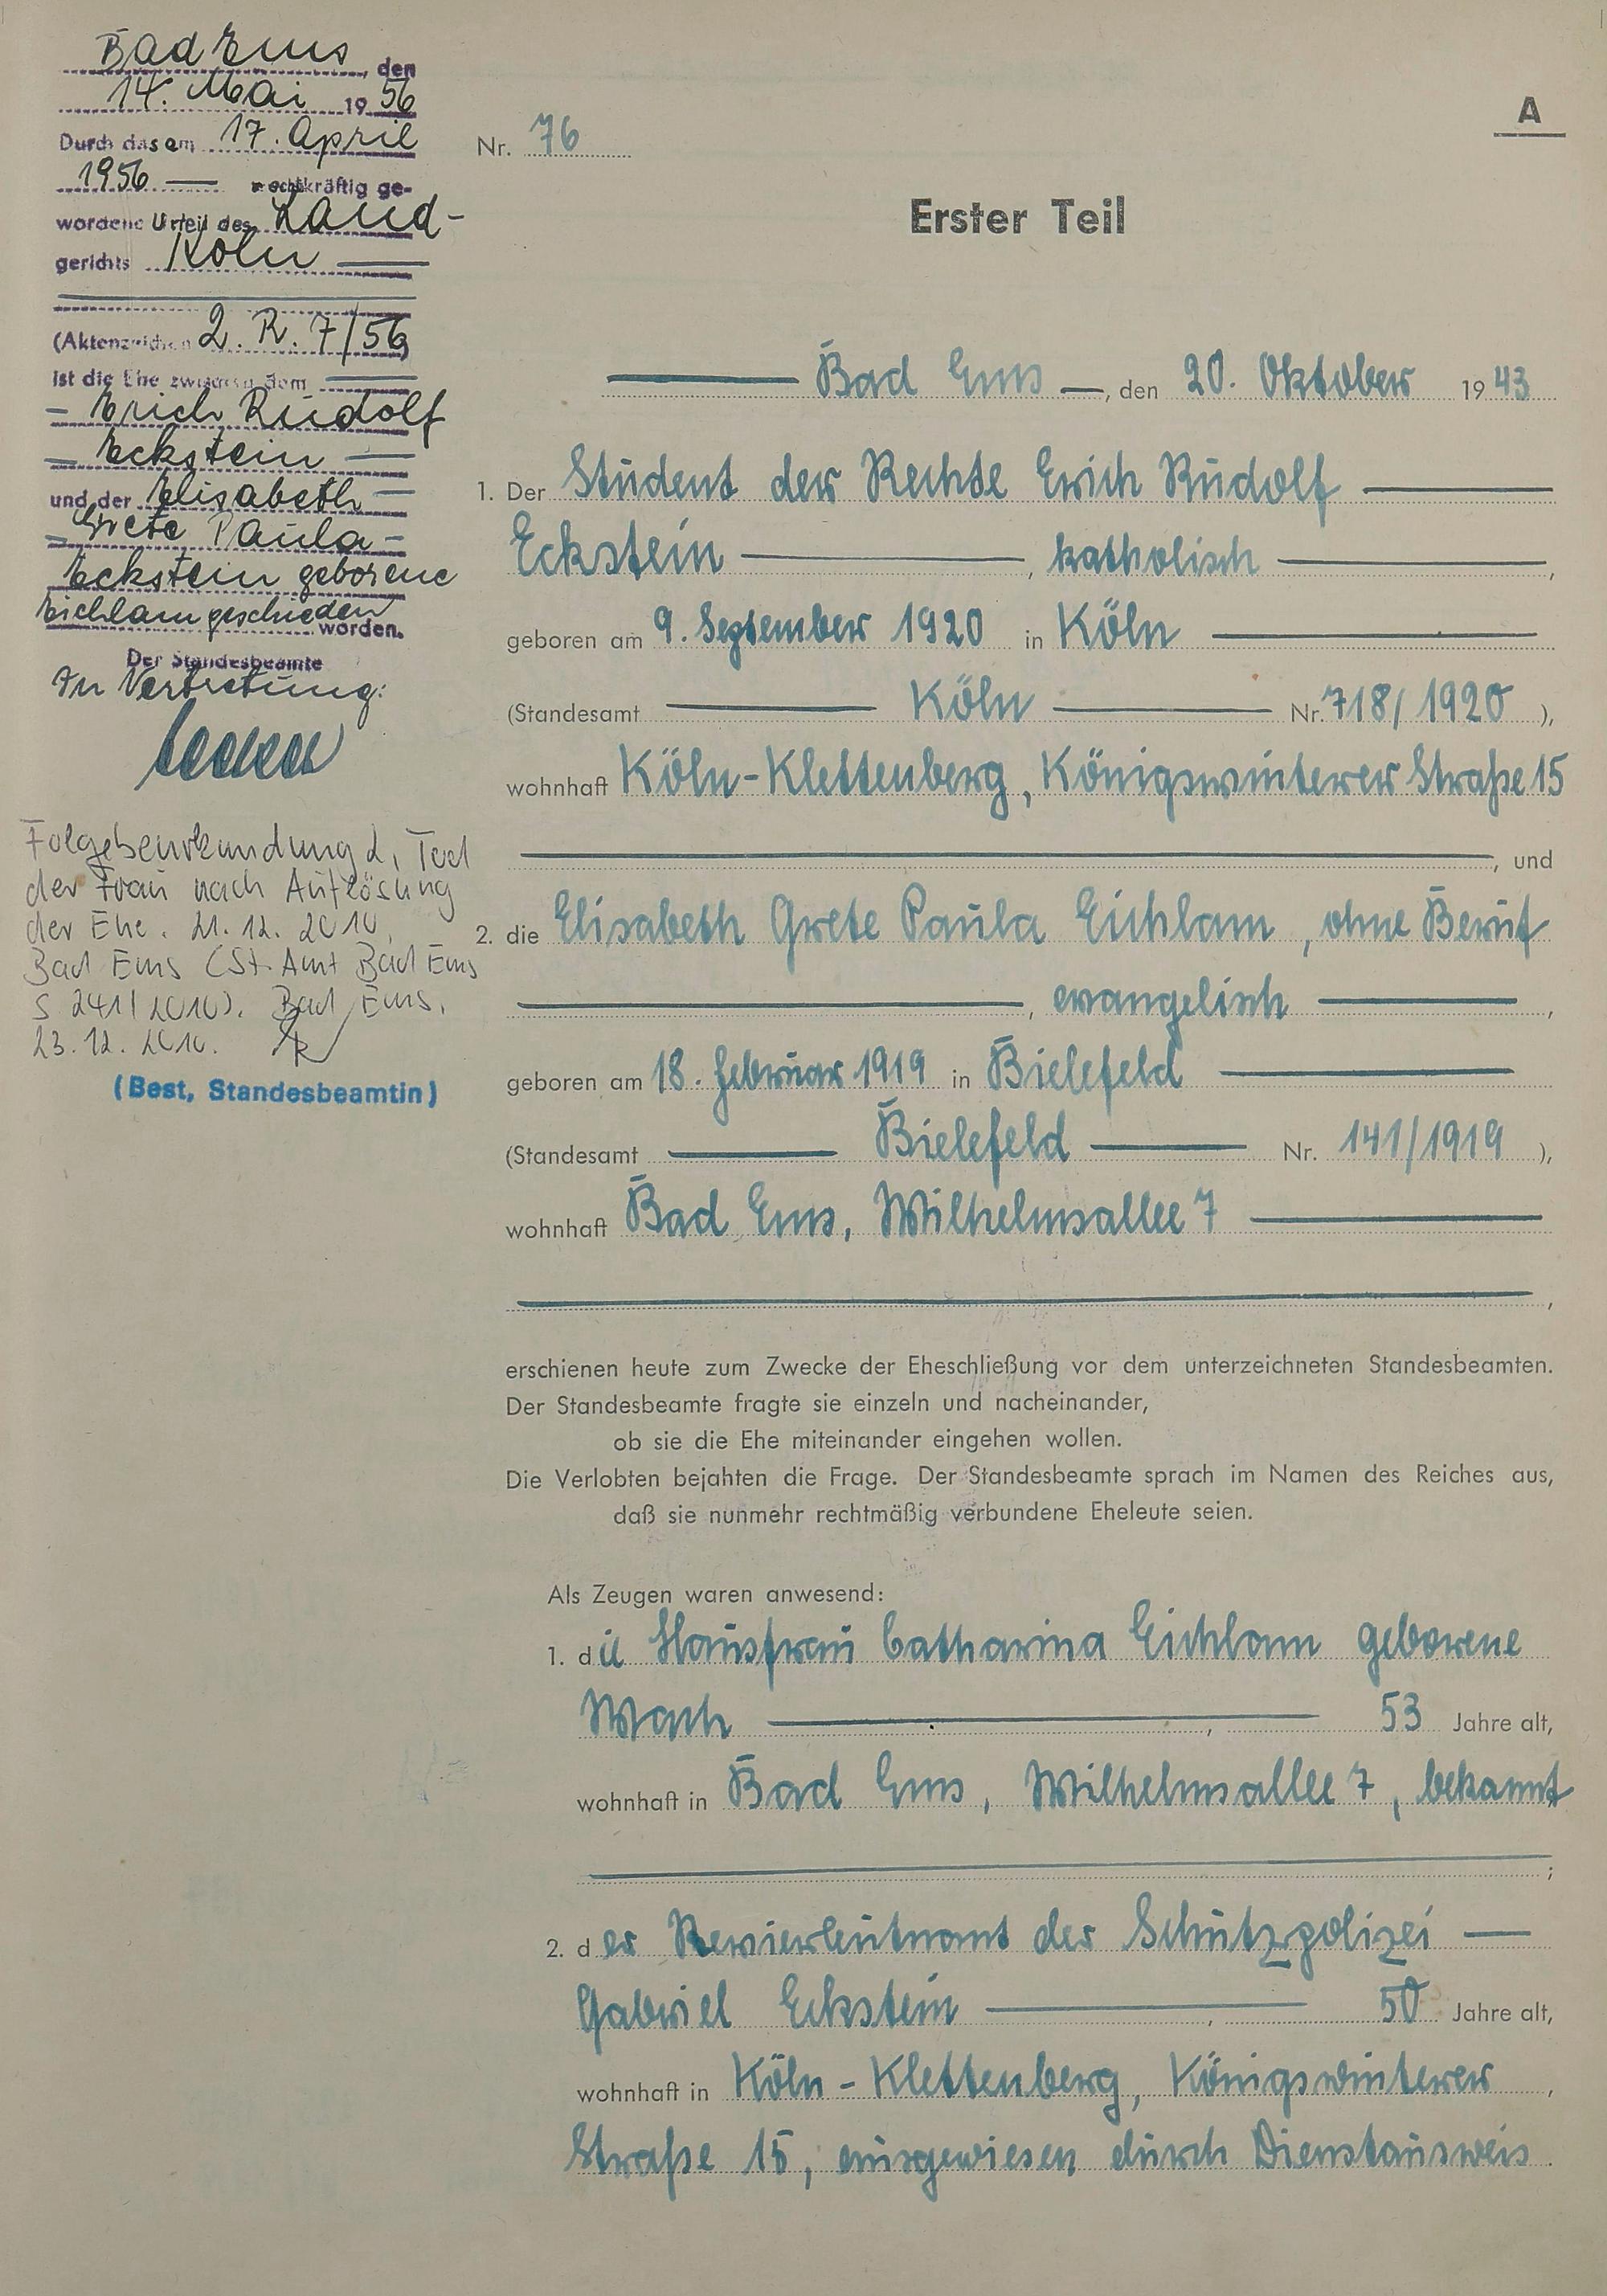 Bad Ems, den
14. Mai 1956
Durch das am 17. April
1956 — rechtskräftig ge-
wordene Urteil des Land-
gerichts Köln —
(Aktenzeichen 2. R. 7/56)
ist die Ehe zwischen dem —
— Erich Rudolf
— Eckstein —
und der Elisabeth —
— Grete Paula —
Eckstein geborene
Eichlam geschieden
worden.
Der Standesbeamte
In Vertretung:
Folgebeurkundung d. Tod
der Frau nach Auflösung
der Ehe. 21.12.2010,
Bad Ems (St. Amt Bad Ems
S 241/2010). Bad Ems,
23.12.2010.
(Best, Standesbeamtin)
A
Nr. 76
Erster Teil
— Bad Ems —, den 20. Oktober 1943
1. Der Student der Rechte Erich Rudolf —
Eckstein —, katholisch —,
geboren am 9. September 1920 in Köln —
(Standesamt — Köln — Nr. 718/1920),
wohnhaft Köln-Klettenberg, Königswinterer Straße 15
—, und
2. die Elisabeth Grete Paula Eichlam, ohne Beruf
—, evangelisch —,
geboren am 18. Februar 1919 in Bielefeld —
(Standesamt — Bielefeld — Nr. 141/1919),
wohnhaft Bad Ems, Wilhelmsallee 7 —
—,
erschienen heute zum Zwecke der Eheschließung vor dem unterzeichneten Standesbeamten.
Der Standesbeamte fragte sie einzeln und nacheinander,
ob sie die Ehe miteinander eingehen wollen.
Die Verlobten bejahten die Frage. Der Standesbeamte sprach im Namen des Reiches aus,
daß sie nunmehr rechtmäßig verbundene Eheleute seien.
Als Zeugen waren anwesend:
1. die Hausfrau Catharina Eichlam geborene
Wach —, — 53 Jahre alt,
wohnhaft in Bad Ems, Wilhelmsallee 7, bekannt
—;
2. der Revierleutnant der Schutzpolizei —
Gabriel Eckstein —, 50 Jahre alt,
wohnhaft in Köln-Klettenberg, Königswinterer,
Straße 15, ausgewiesen durch Dienstausweis.